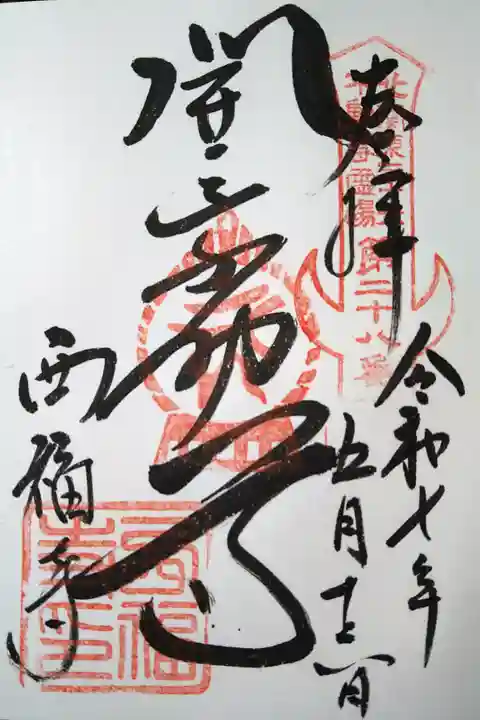 奉拝
北関東三十六
不動尊霊場
第二十八番
令和七年
五月
動尊
西福寺
西福
寺印